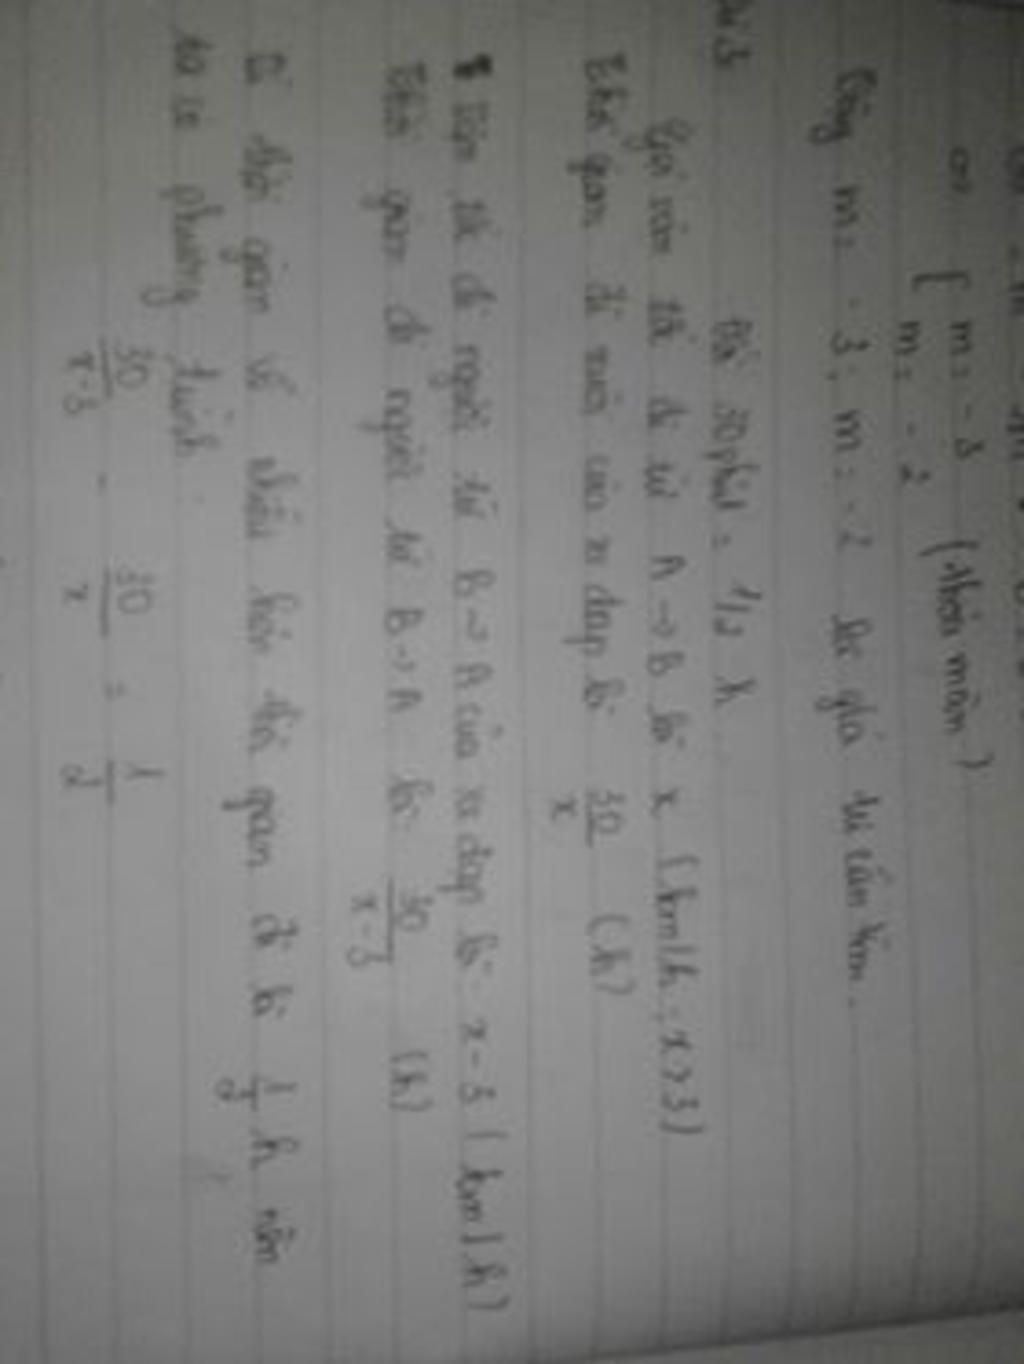 ⇔ [ m = -3
m = -2 (thỏa mãn)
Vậy m = -3; m = -2 là giá trị cần tìm.
Bài 3
Đổi 30 phút = 1/2 h
Gọi vận tốc đi từ A → B là x (km/h; x > 3)
Thời gian đi của xe đạp là 30/x (h)
Vận tốc đi người từ B → A của xe đạp là x - 3 (km/h)
Thời gian đi người từ B → A là 30/(x-3) (h)
thời gian về nhiều hơn thời gian đi là 1/2 h nên
ta có phương trình:
30/(x-3) - 30/x = 1/2